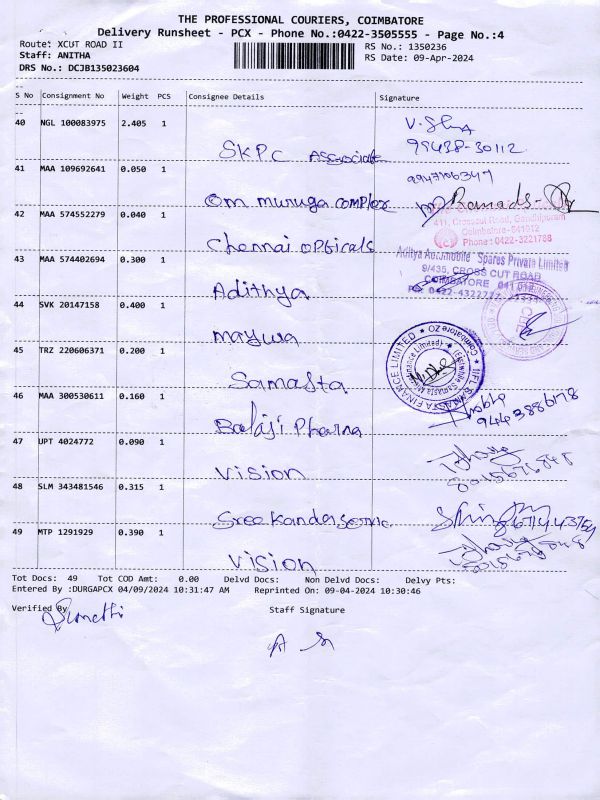 THE PROFESSIONAL COURIERS, COIMBATORE
Delivery Runsheet - PCX - Phone No.:0422-3505555 - Page No.:4
Route: XCUT ROAD II
RS No.: 1350236
Staff: ANITHA
RS Date: 09-Apr-2024
DRS No.: DCJB135023604
S No Consignment No Weight PCS Consignee Details Signature
40 NGL 100083975 2.405 1
SKPC Associate
99438-30112
41 MAA 109692641 0.050 1
Om muruga complex
42 MAA 574552279 0.040 1
Chennai opticals
411, Crosscut Road, Gandhipuram
Coimbatore-641012
Phone: 0422-3221788
43 MAA 574402694 0.300 1
Adithya
Aditya Automobile Spares Private Limited
9/435, CROSS CUT ROAD
COIMBATORE
44 SVK 20147158 0.400 1
maywa
45 TRZ 220606371 0.200 1
Samasta
IIFL SAMASTA FINANCE LIMITED
46 MAA 300530611 0.160 1
Balaji Pharma
47 UPT 4024772 0.090 1
vision
48 SLM 343481546 0.315 1
Sree Kander Service
49 MTP 1291929 0.390 1
vision
Tot Docs: 49 Tot COD Amt: 0.00 Delvd Docs: Non Delvd Docs: Delvy Pts:
Entered By :DURGAPCX 04/09/2024 10:31:47 AM Reprinted On: 09-04-2024 10:30:46
Verified By
Staff Signature